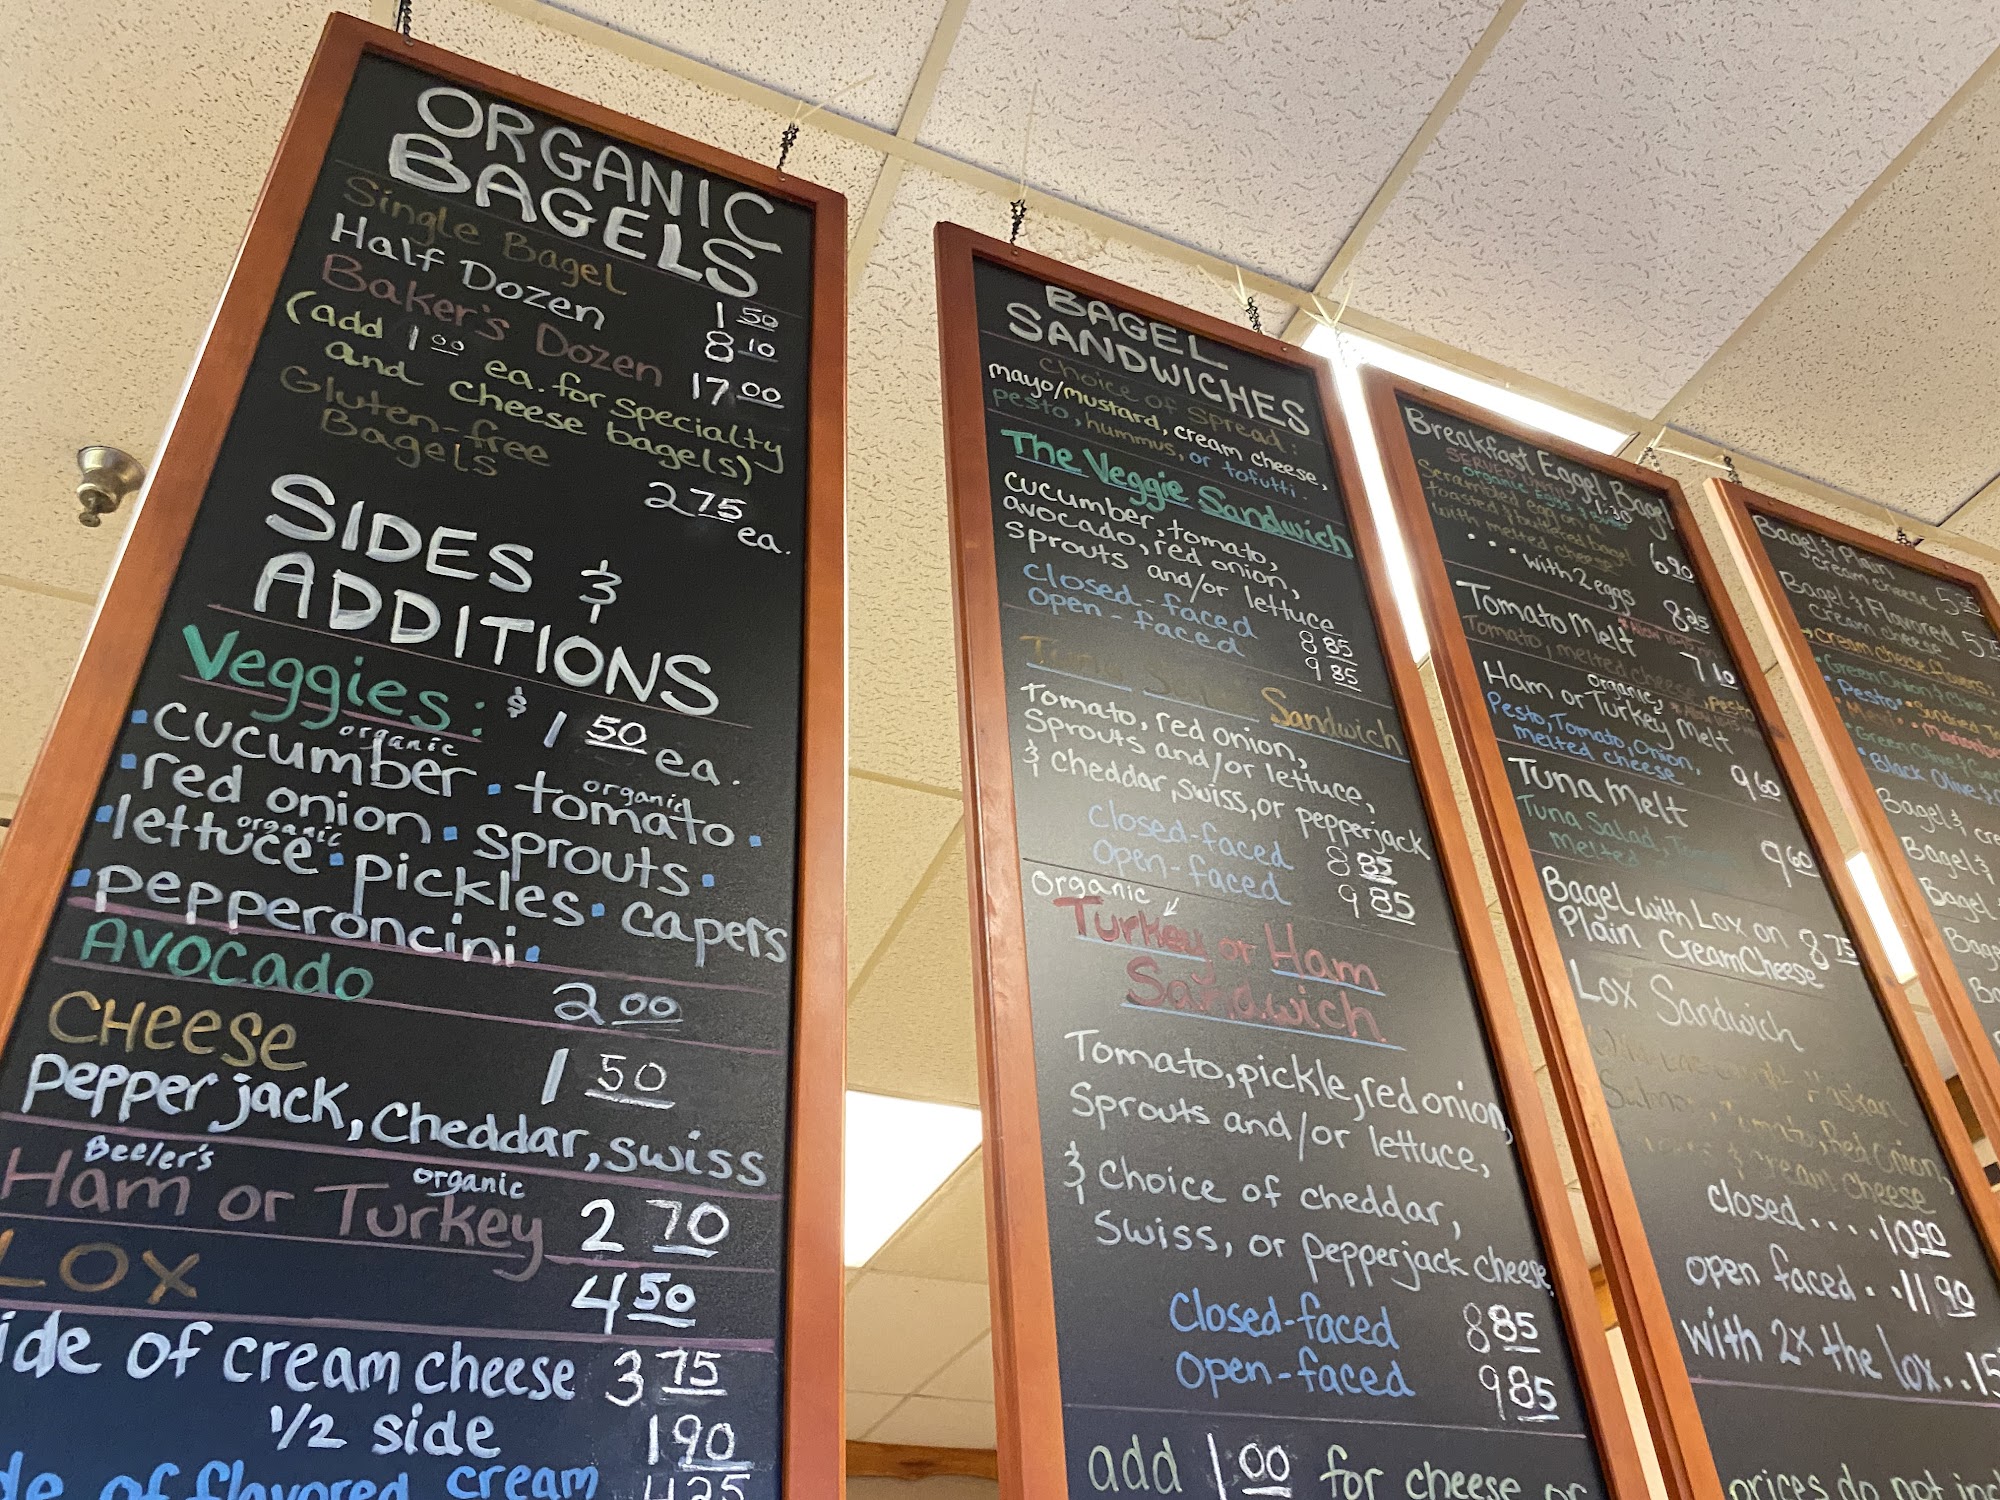 ORGANIC
BAGELS
Single Bagel 1 50
Half Dozen 8 10
Baker's Dozen 17 00
(add 1 00 ea. for specialty
and cheese bagel(s)
Gluten-free
Bagels 2 75 ea.
SIDES &
ADDITIONS
Veggies: $1 50 ea.
cucumber • organic tomato •
• red onion • sprouts •
organic
• lettuce • pickles • capers
organic
• pepperoncini •
Avocado 2 00
CHeese 1 50
pepper jack, cheddar, swiss
Beeler's organic
Ham or Turkey 2 70
LOX 4 50
ide of cream cheese 3 75
1/2 side 1 90
de of flavored cream 4 25
BAGEL
SANDWICHES
choice of spread:
mayo/mustard, cream cheese,
pesto, hummus, or tofutti.
The Veggie Sandwich
cucumber, tomato,
avocado, red onion,
sprouts and/or lettuce
closed-faced 8 85
open-faced 9 85
Tuna Salad Sandwich
Tomato, red onion,
Sprouts and/or lettuce,
& cheddar, swiss, or pepperjack
closed-faced 8 85
open-faced 9 85
Organic
Turkey or Ham
Sandwich
Tomato, pickle, red onion,
Sprouts and/or lettuce,
& choice of cheddar,
Swiss, or pepperjack cheese
Closed-faced 8 85
Open-faced 9 85
add 1 00 for cheese or
Breakfast Eggel Bagel
SERVED UNTIL 1:30
organic eggs
Scrambled egg on a
toasted & buttered bagel
with melted cheese 6 90
... with 2 eggs 8 25
Tomato Melt 7 10
Tomato, melted cheese, pesto
organic
Ham or Turkey Melt
Pesto, Tomato, onion,
melted cheese 9 60
Tuna Melt
Tuna Salad,
melted 9 60
Bagel with Lox on
Plain Cream Cheese 8 75
Lox Sandwich
Wild Alaskan
Salmon, Tomato, Red Onion,
& cream cheese
closed.... 10 90
open faced.. 11 90
with 2x the lox.. 15
prices do not inc
Bagel & Plain
cream cheese 5 25
Bagel & Flavored
cream cheese 5 75
cream cheese flavors:
• Green Onion &
• Pesto •
• Green Olive &
• Black Olive &
Bagel & cre
Bagel &
Bagel
Bagel
Ba